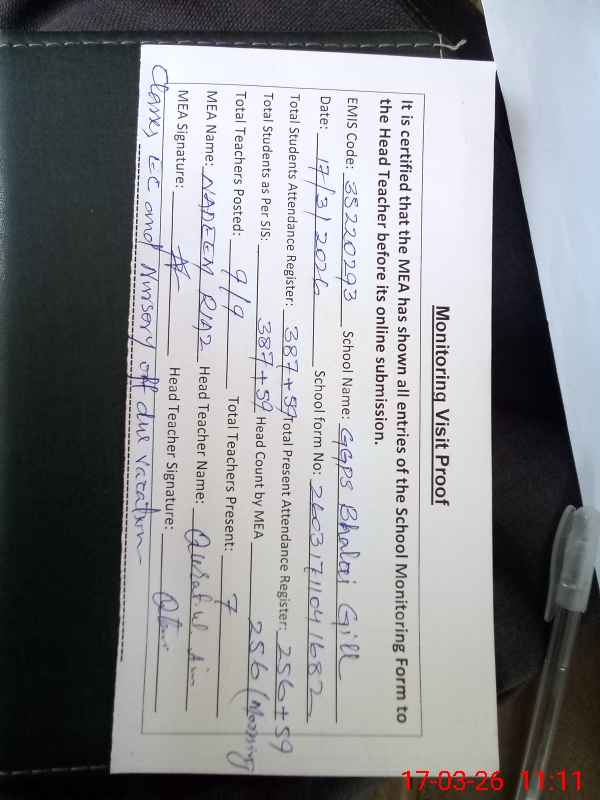 Monitoring Visit Proof
It is certified that the MEA has shown all entries of the School Monitoring Form to
the Head Teacher before its online submission.
EMIS Code: 35220293 School Name: GGPS Bhalai Gill
Date: 17/3/2026 School form No: 26031711041682
Total Students Attendance Register: 387+59 Total Present Attendance Register: 256+59
Total Students as Per SIS: 387+59 Head Count by MEA 256 (Morning
Total Teachers Posted: 9/9 Total Teachers Present: 7
MEA Name: NADEEM RIAZ Head Teacher Name: Qurat ul Ain
MEA Signature: Head Teacher Signature:
Classes EC and Nursery off due vacation
17-03-26 11:11